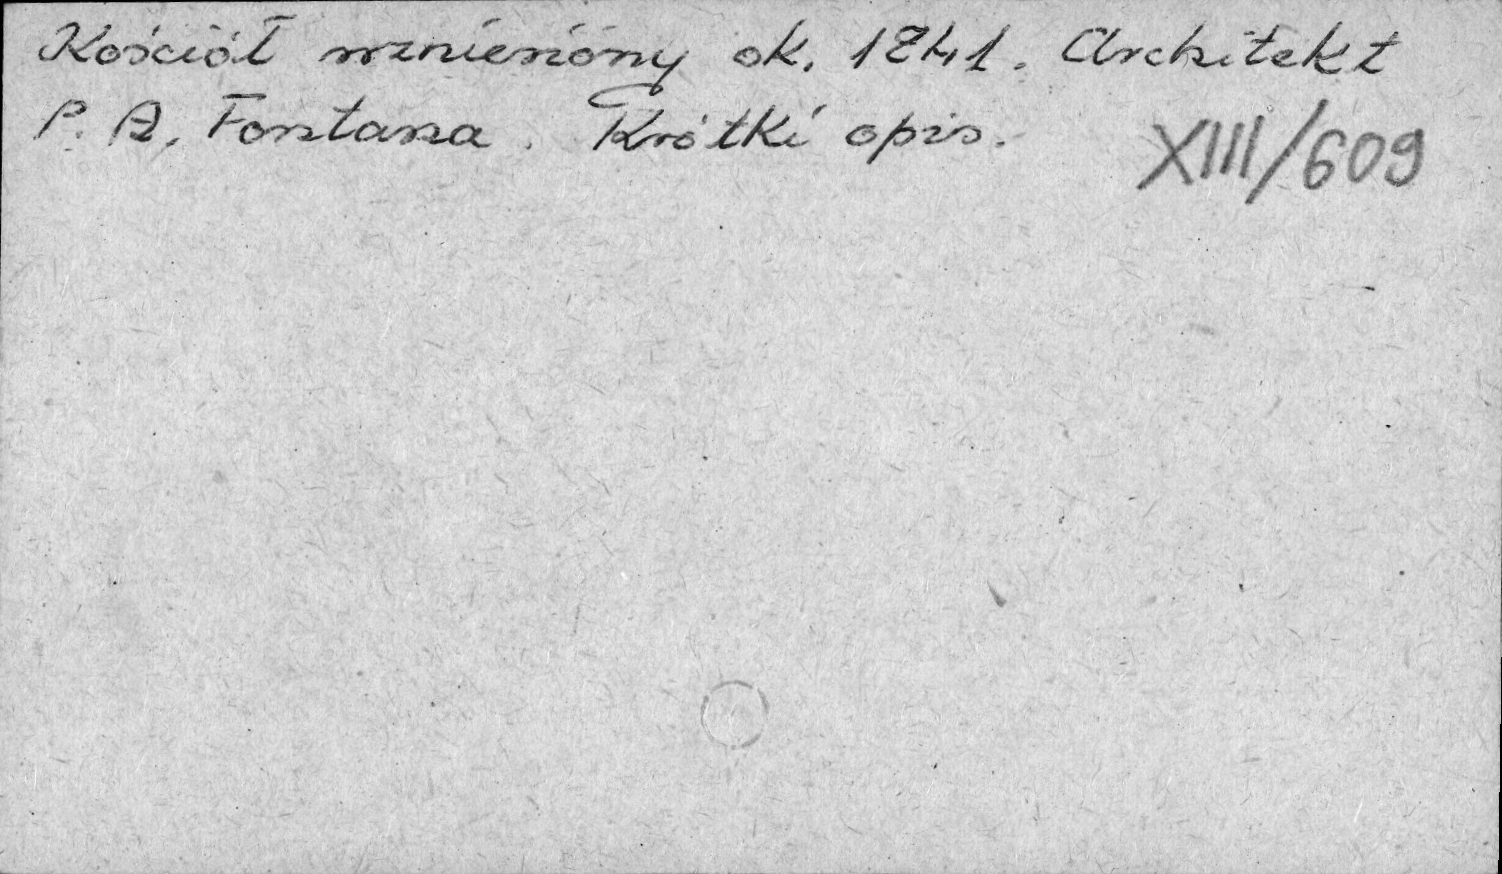 Kościół wzniesiony ok. 1741. Architekt
P. A. Fontana. Krótki opis.
XIII/609